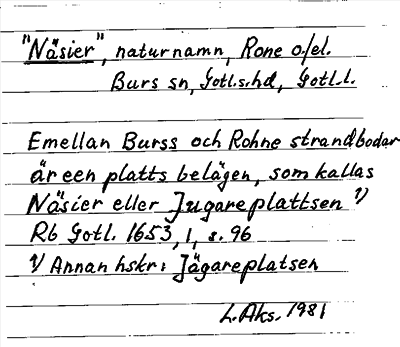 "Näsier", naturnamn, Rone o/el.
Burs sn, Gotl.s.hd, Gotl.l.
Emellan Burss och Rohne strandbodar
är een platts belägen, som kallas
Näsier eller Jugareplattsen 1)
Rb Gotl. 1653, 1, s. 96
1) Annan hskr: Jägareplatsen
L. Aks. 1981